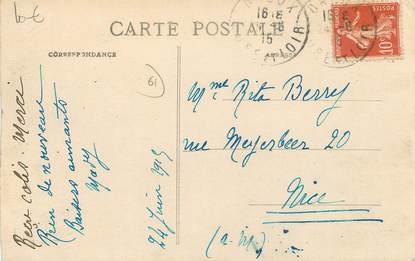 6€
CARTE POSTALE
CORRESPONDANCE
ADRESSE
61
Reçu colis. Merci
Rien de nouveau
Baisers aimants
Mady
24 Juin 1915
Mme Rita Berry
rue Meyerbeer 20
Nice
(a-M)
16
15
POSTES
10